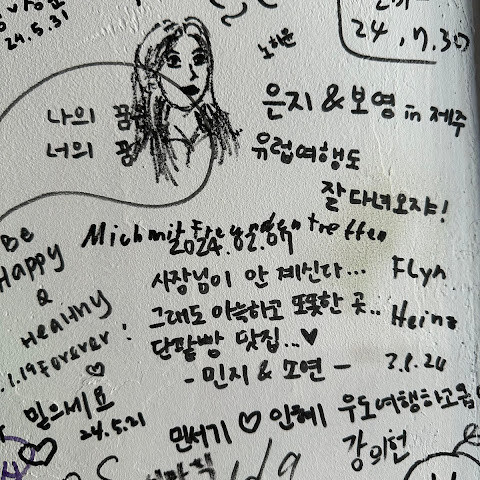 24.5.31
노하은
24.7.30
나의 꿈
너의 꿈
은지 & 보영 in 제주
유럽여행도
잘 다녀오쟈!
Be
Happy
&
Healthy
Forever!
2024.02.07
사장님이 안 계신다...
그래도 아늑하고 또뜻한 곳..
단팥빵 맛집...♥
- 민지 & 소연 -
Flyn
Heinz
3.8.24
믿으세요
24.5.21
민서기 ♡ 인혜
우도여행하고옴
강의헌